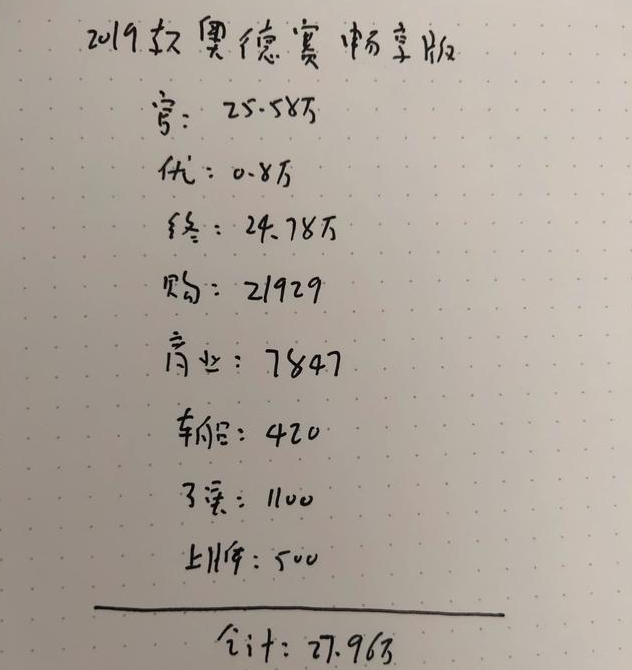 2019款奥德赛畅享版
官: 25.58万
优: 0.8万
终: 24.78万
购: 21929
商业: 7847
车船: 420
交强: 1100
上牌: 500
合计: 27.96万